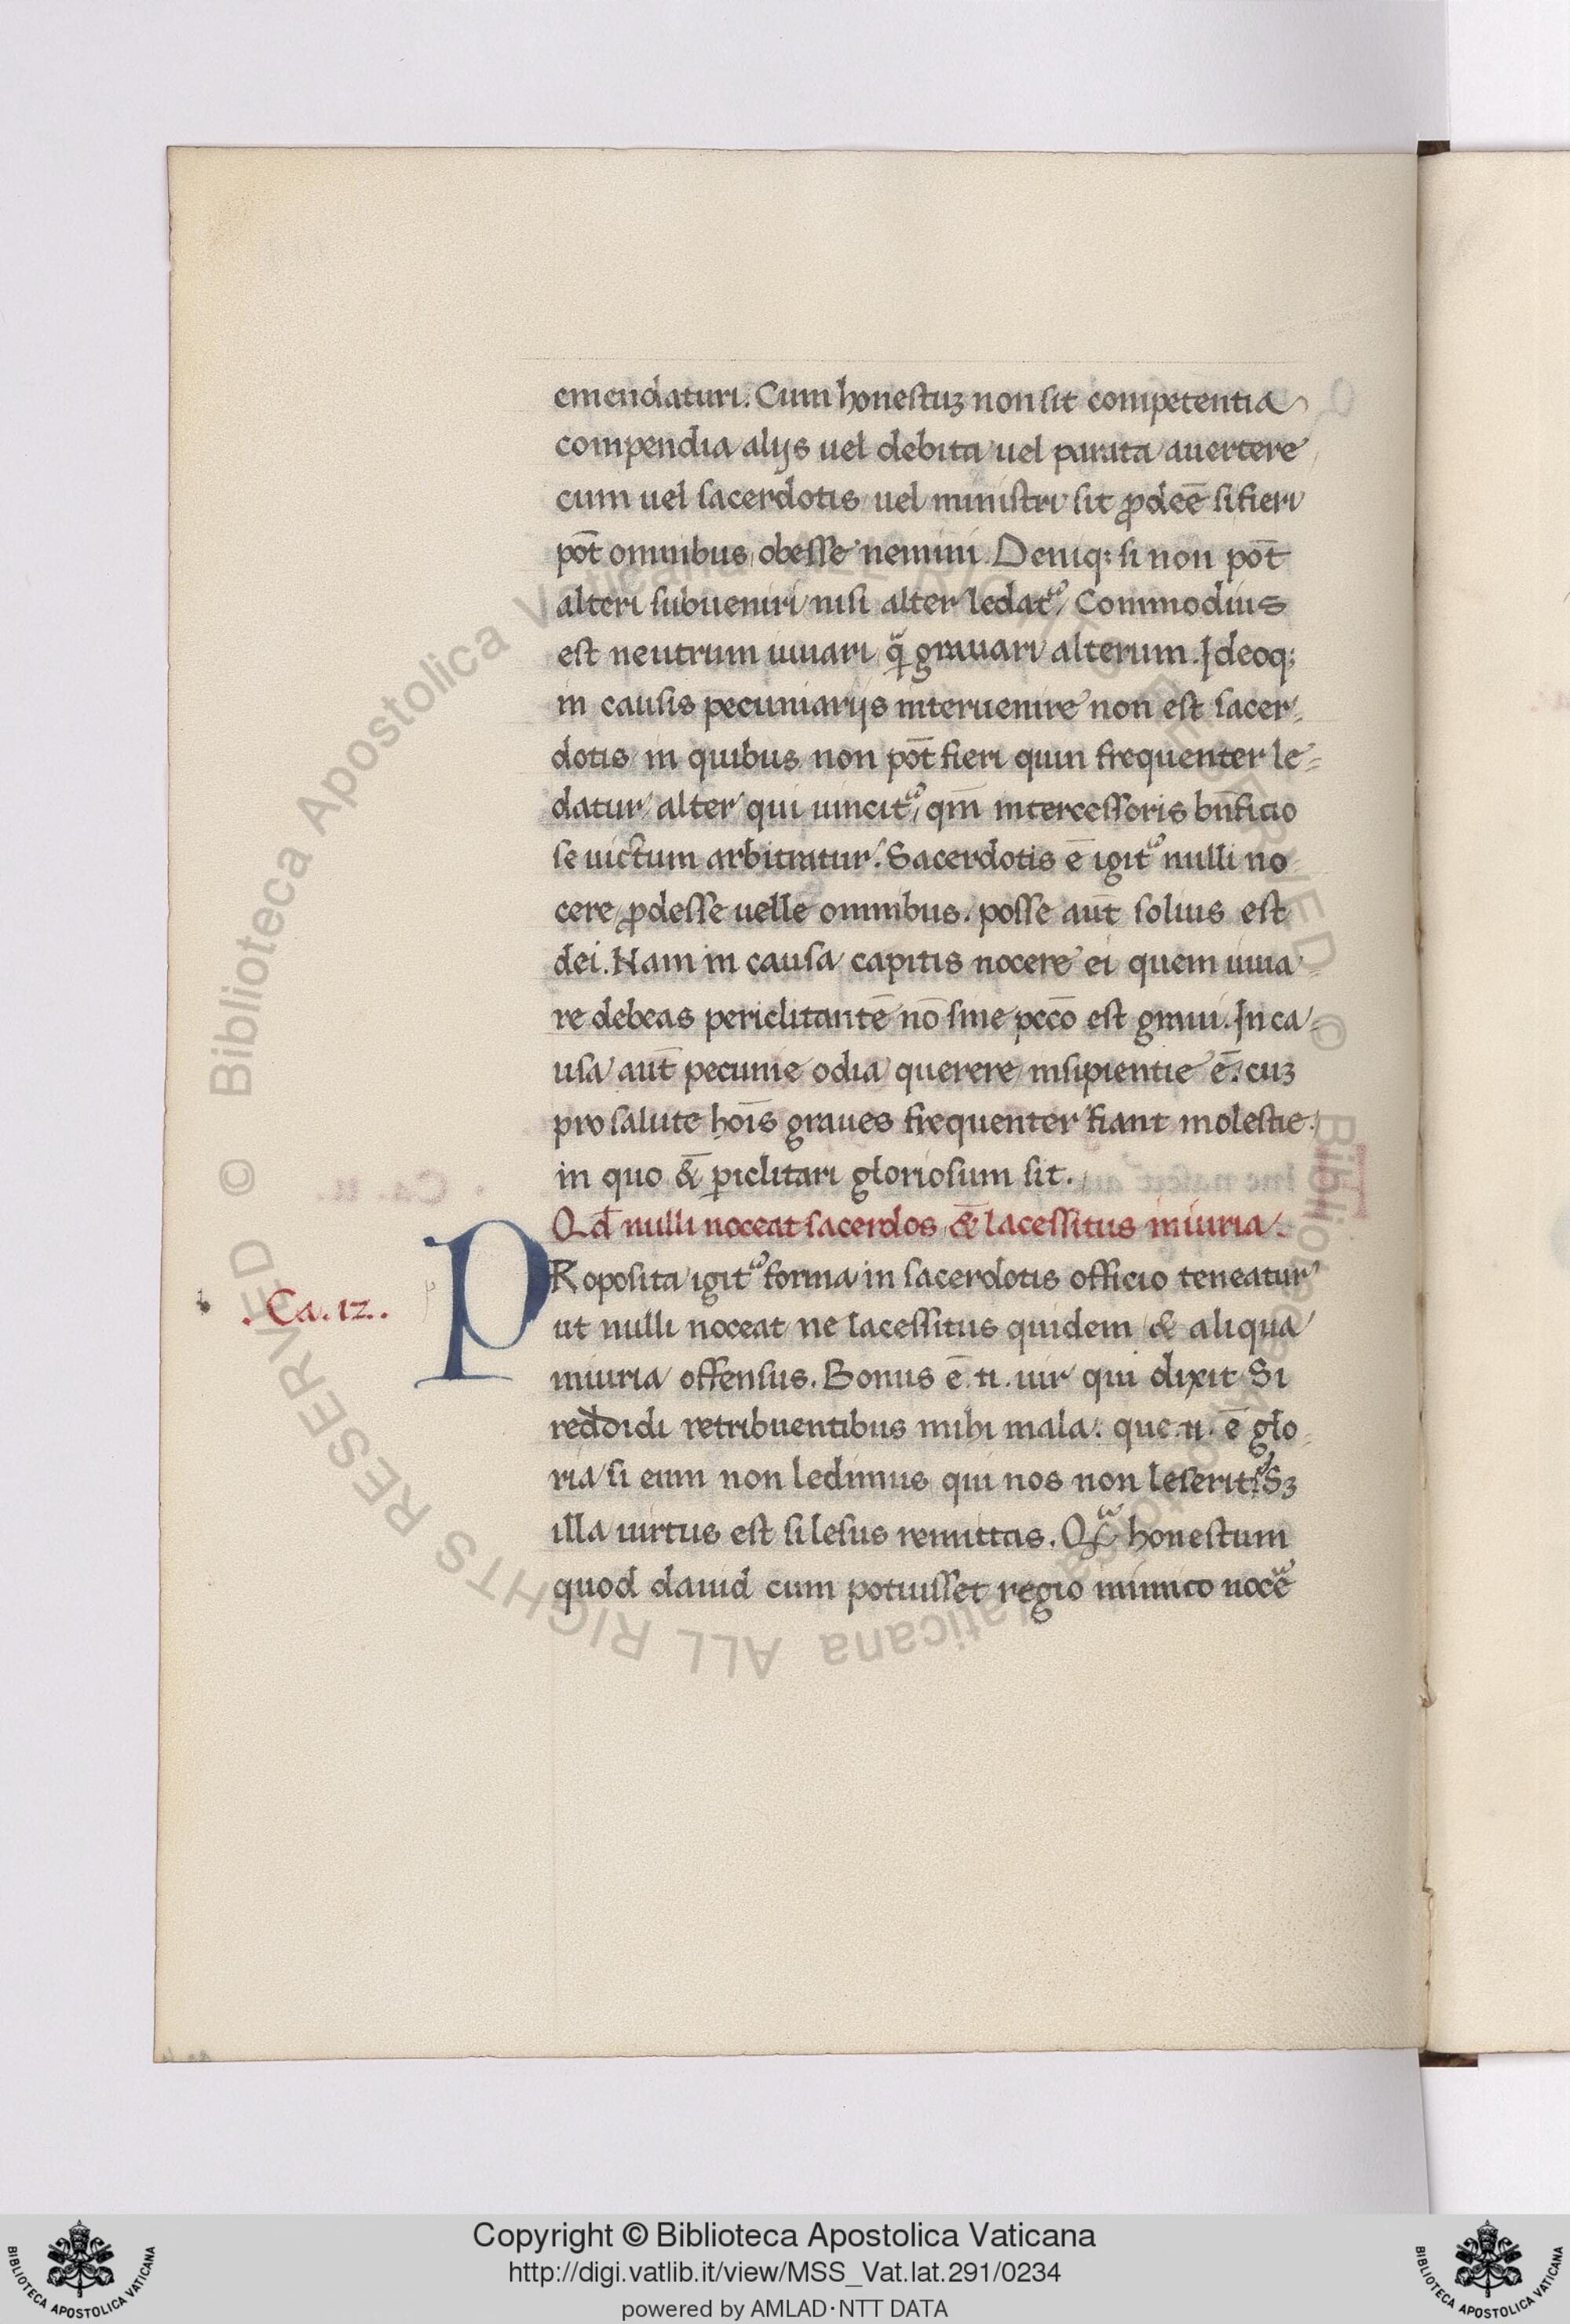 emendaturi. Cum honestuꝫ non sit competentia
compendia alijs uel debita uel parata auertere
cum uel sacerdotis uel ministri sit ꝓdeē si fieri
pōt omnibus obesse nemini. Deniqꝫ si non pōt
alteri subueniri nisi alter ledat᷑. Commodius
est neutrum iuuari qᷓ grauari alterum. Ideoqꝫ
in causis pecuniarijs interuenire non est sacer-
dotis in quibus non pōt fieri quin frequenter le-
datur alter qui uincit᷑, qm̄ intercessoris bn̄ficio
se uictum arbitratur. Sacerdotis ē igit᷑ nulli no
cere ꝓdesse uelle omnibus. posse aut̄ solius est
dei. Nam in causa capitis nocere ei quem iuua-
re debeas periclitantē nō sine pccō est graui. In ca-
usa aut̄ pecunie odia querere insipientie ē. cuꝫ
pro salute hoīs graues frequenter fiant molestie.
in quo & ꝑiclitari gloriosum sit.
Qd̄ nulli noceat sacerdos & lacessitus iniuria.
.Ca. 12.
PRoposita igit᷑ forma in sacerdotis officio teneatur
ut nulli noceat ne lacessitus quidem & aliqua
iniuria offensus. Bonus ē .n. uir qui dixit Si
reddidi retribuentibus mihi mala. que .n. ē glo-
ria si eum non ledimus qui nos non leserit? Sꝫ
illa uirtus est si lesus remittas. Qᷓ honestum
quod dauid cum potuisset regio inimico nocē
© Biblioteca Apostolica Vaticana ALL RIGHTS RESERVED © Biblioteca Apostolica Vaticana ALL RIGHTS RESERVED
Copyright © Biblioteca Apostolica Vaticana
http://digi.vatlib.it/view/MSS_Vat.lat.291/0234
powered by AMLAD·NTT DATA
BIBLIOTECA APOSTOLICA VATICANA
BIBLIOTECA APOSTOLICA VATICANA